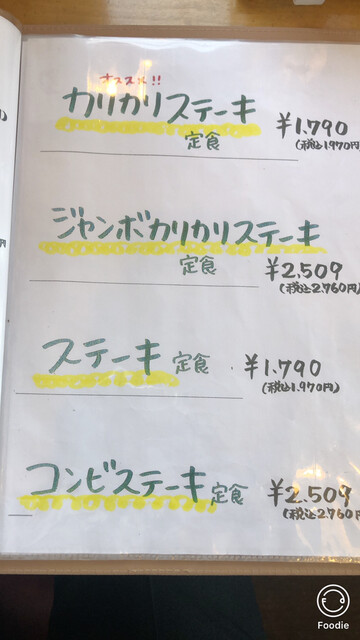 オススメ!!
カリカリステーキ
定食 ¥1,790
(税込1,970円)
ジャンボカリカリステーキ
定食 ¥2,509
(税込2,760円)
ステーキ定食 ¥1,790
(税込1,970円)
コンビステーキ定食 ¥2,509
(税込2,760円
Foodie